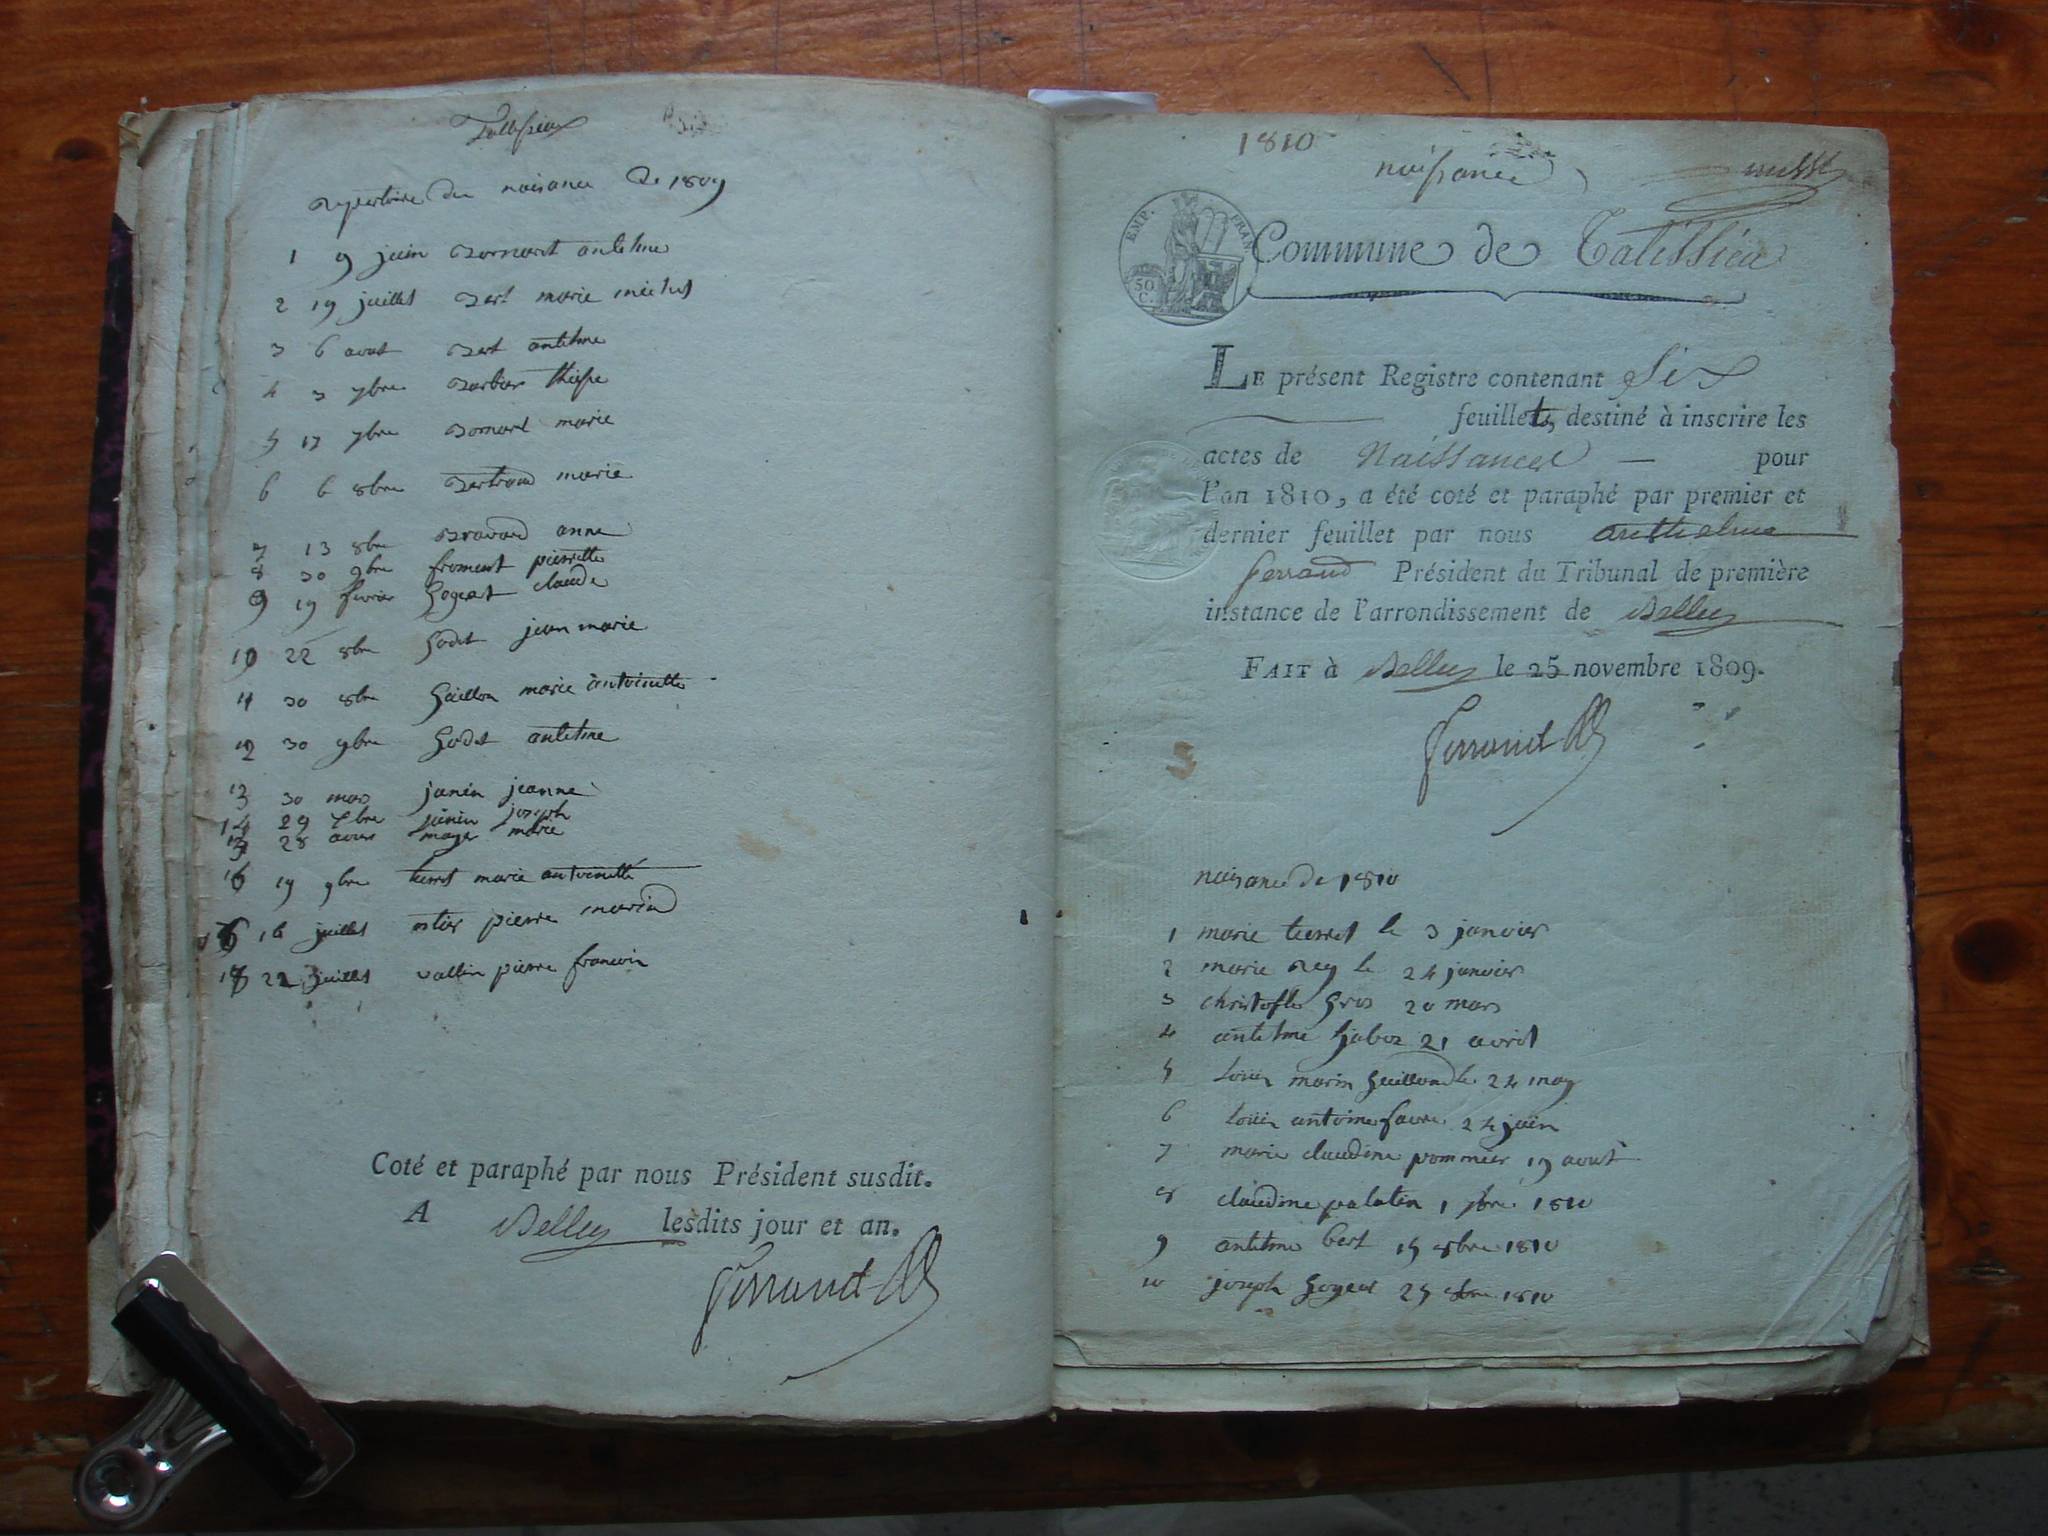 Talissieux
repertoire des naisance de 1809
1 9 juin Bornant antelme
2 19 juillet Bert marie
3 6 aout Bert antelme
4 3 7bre Barbier
5 17 7bre Bornant marie
6 6 8bre Bertrand marie
7 13 8bre Bravand anne
8 30 9bre froment pierrette
9 19 fevrier Gojeat claude
10 22 8bre Godet jean marie
11 30 8bre Guillon marie antoinette
12 30 9bre Godet antelme
13 30 mars janin jeanne
14 29 7bre janin joseph
15 28 mayer marie
16 19 9bre marie antoinette
16 juillet pierre
22 juillet vallin pierre francoin
Coté et paraphé par nous Président susdit.
A Belley lesdits jour et an.
Ferrand
1810
naissance
Commune de Talissieu
EMP. FRAN
50 C.
LE présent Registre contenant Six
feuillets, destiné à inscrire les
actes de Naissances — pour
l'an 1810, a été coté et paraphé par premier et
dernier feuillet par nous anthelme
ferrand Président du Tribunal de première
instance de l'arrondissement de Belley
FAIT à Belley le 25 novembre 1809.
Ferrand
naisance de 1810
1 marie le 3 janvier
2 marie Rey le 24 janvier
3 christofle Gros 20 mars
4 antelme Gaboz 21 avril
5 louis marin Guilland le 24 may
6 louis antoine favre 24 juin
7 marie claudine pommier 19 aout
8 claudine palatin 1 7bre 1810
9 antelme bert 15 8bre 1810
10 joseph Gojeat 25 8bre 1810